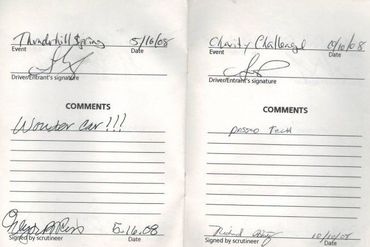 Thunderhill Spring 5/16/08
Event Date
Driver/Entrant's signature
COMMENTS
Wonder car!!!
5.16.08
Signed by scrutineer Date
Charity Challenge 10/10/08
Event Date
Driver/Entrant's signature
COMMENTS
passed Tech
10/10/08
Signed by scrutineer Date